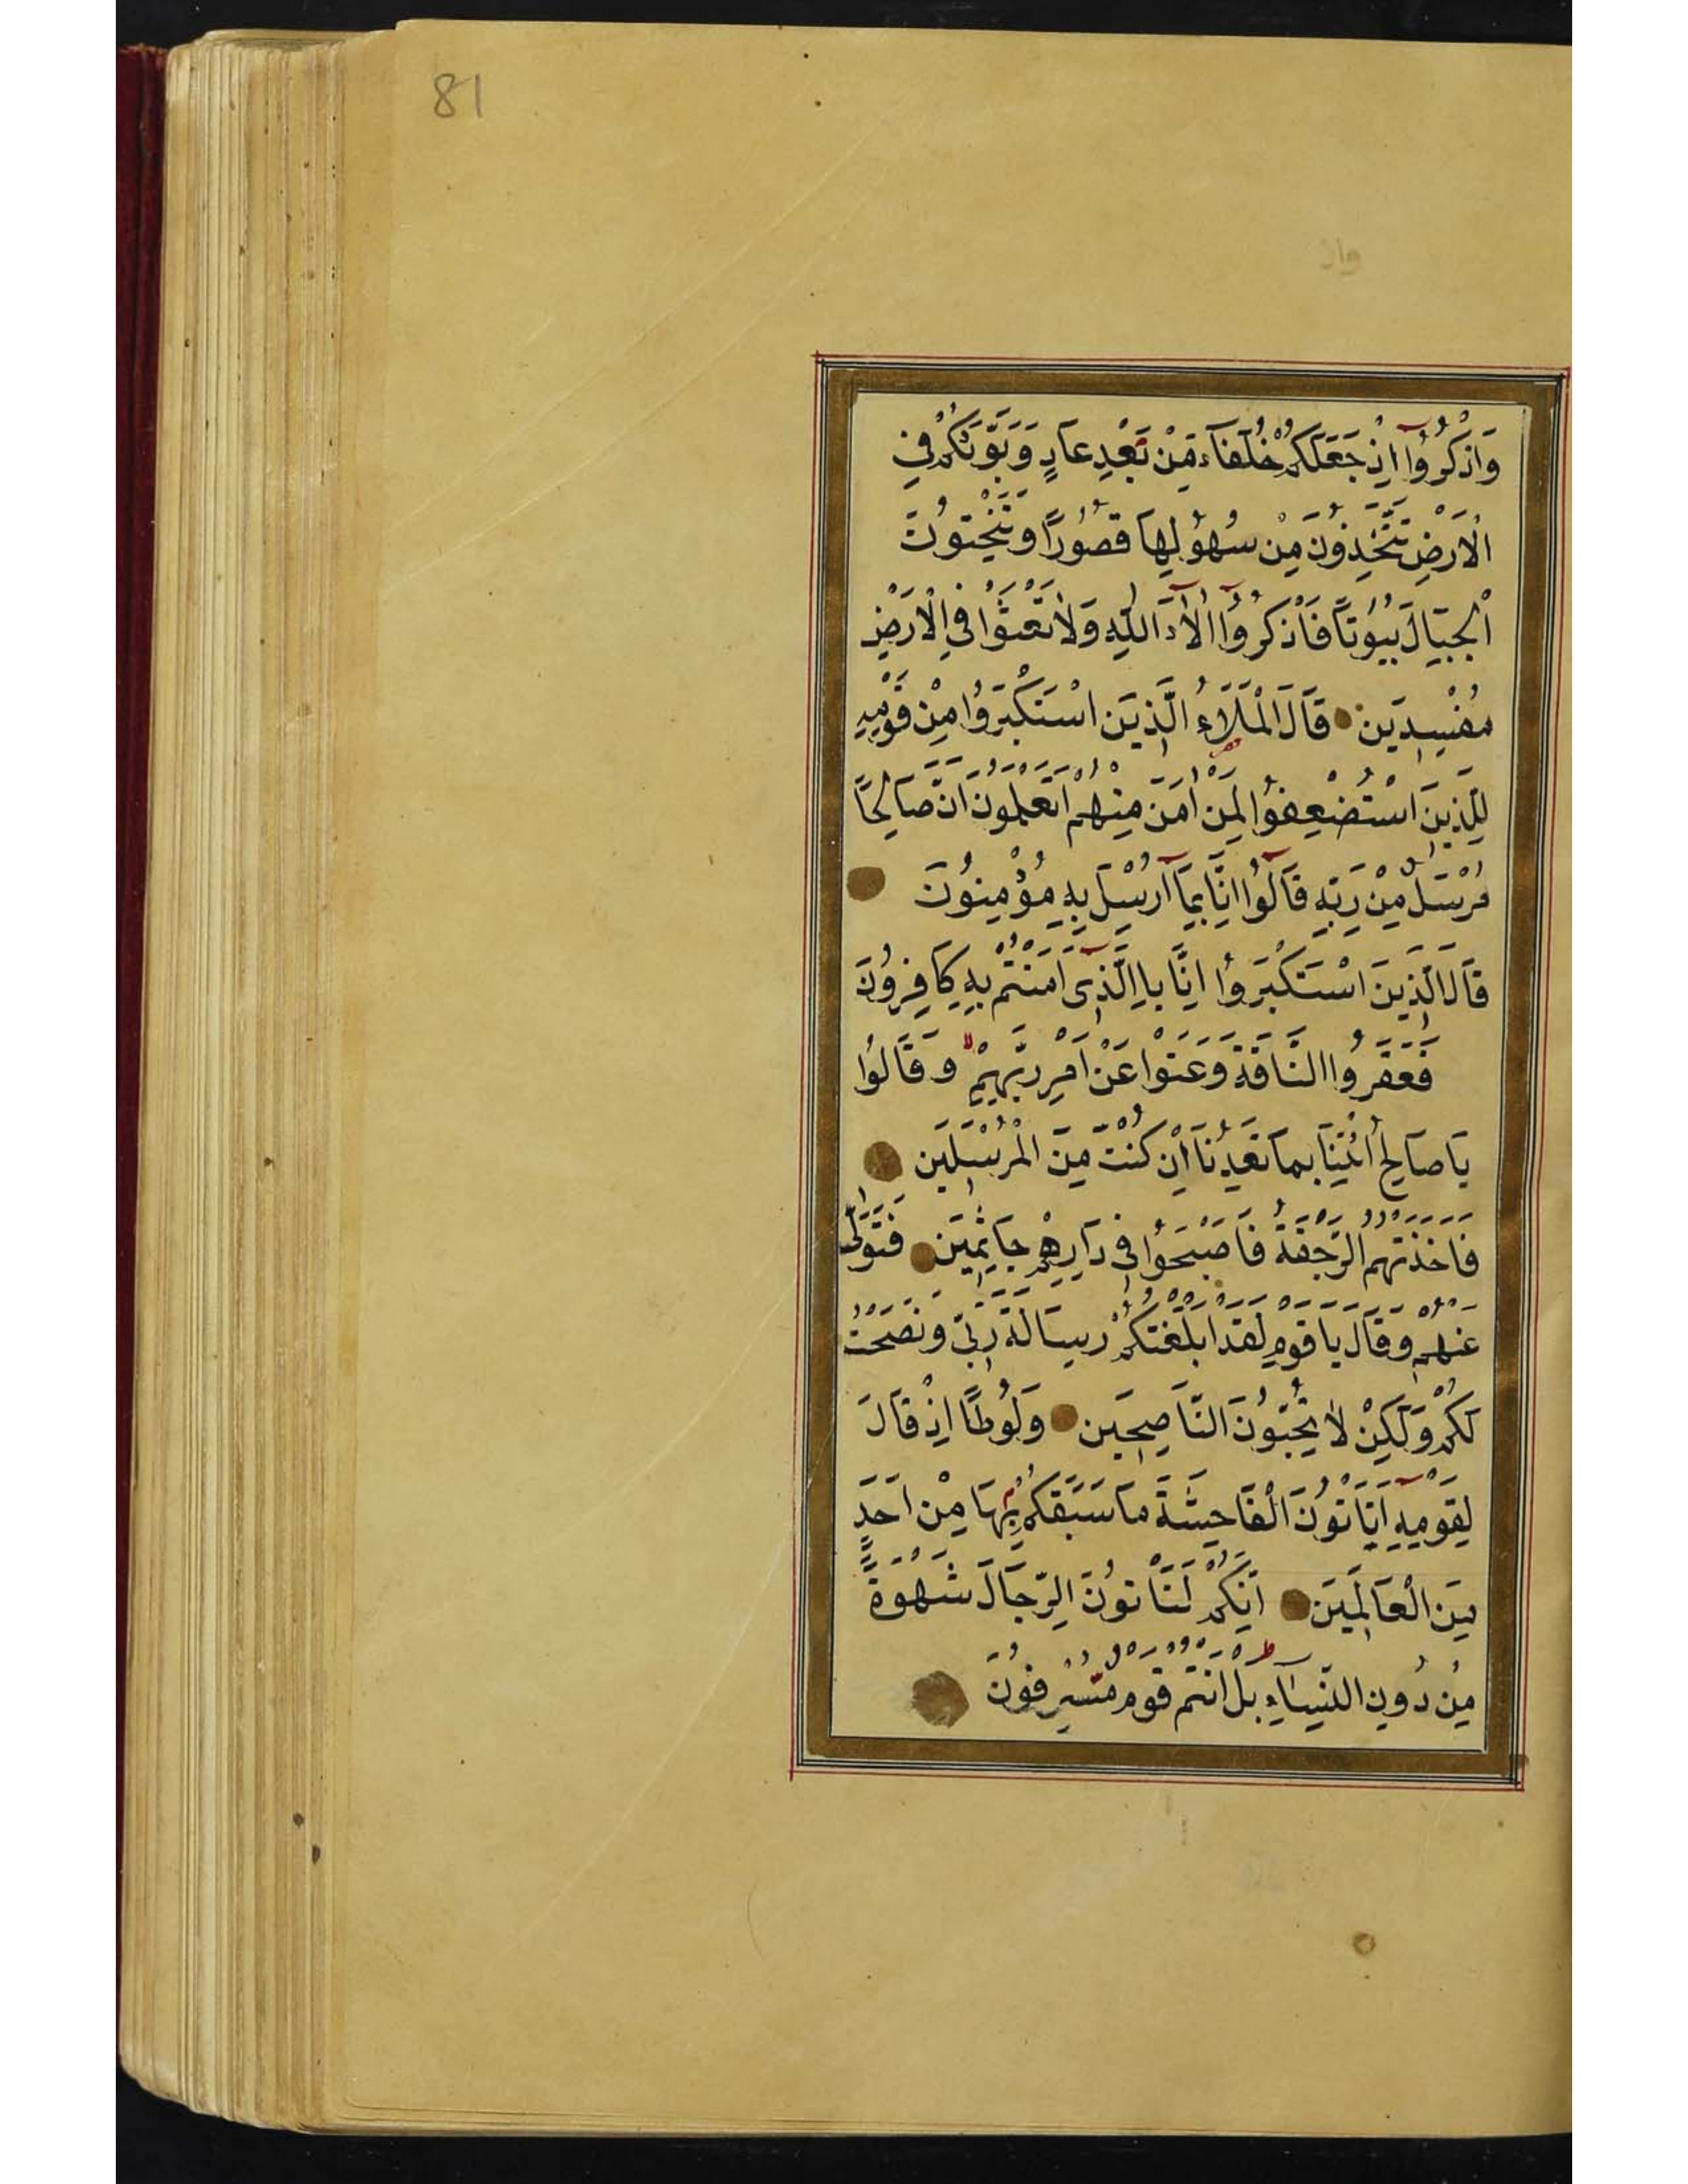 81
وَاذْكُرُوا اِذْ جَعَلَكُمْ خُلَفَاءَ مِنْ بَعْدِ عَادٍ وَبَوَّئَكُمْ فِي
الْاَرْضِ تَتَّخِذُونَ مِنْ سُهُولِهَا قُصُورًا وَتَنْحِتُونَ
الْجِبَالَ بُيُوتًا فَاذْكُرُوا اٰلَآءَ اللّٰهِ وَلَا تَعْثَوْا فِي الْاَرْضِ
مُفْسِدِينَ قَالَ الْمَلَاءُ الَّذِينَ اسْتَكْبَرُوا مِنْ قَوْمِهِ
لِلَّذِينَ اسْتُضْعِفُوا لِمَنْ اٰمَنَ مِنْهُمْ اَتَعْلَمُونَ اَنَّ صَالِحًا
مُرْسَلٌ مِنْ رَبِّهِ قَالُوا اِنَّا بِمَا اُرْسِلَ بِهِ مُؤْمِنُونَ
قَالَ الَّذِينَ اسْتَكْبَرُوا اِنَّا بِالَّذِي اٰمَنْتُمْ بِهِ كَافِرُونَ
فَعَقَرُوا النَّاقَةَ وَعَتَوْا عَنْ اَمْرِ رَبِّهِمْ وَقَالُوا
يَا صَالِحُ ائْتِنَا بِمَا تَعِدُنَا اِنْ كُنْتَ مِنَ الْمُرْسَلِينَ
فَاَخَذَتْهُمُ الرَّجْفَةُ فَاَصْبَحُوا فِي دَارِهِمْ جَاثِمِينَ فَتَوَلّٰى
عَنْهُمْ وَقَالَ يَا قَوْمِ لَقَدْ اَبْلَغْتُكُمْ رِسَالَةَ رَبِّي وَنَصَحْتُ
لَكُمْ وَلَكِنْ لَا تُحِبُّونَ النَّاصِحِينَ وَلُوطًا اِذْ قَالَ
لِقَوْمِهِ اَتَأْتُونَ الْفَاحِشَةَ مَا سَبَقَكُمْ بِهَا مِنْ اَحَدٍ
مِنَ الْعَالَمِينَ اَئِنَّكُمْ لَتَأْتُونَ الرِّجَالَ شَهْوَةً
مِنْ دُونِ النِّسَاءِ بَلْ اَنْتُمْ قَوْمٌ مُسْرِفُونَ